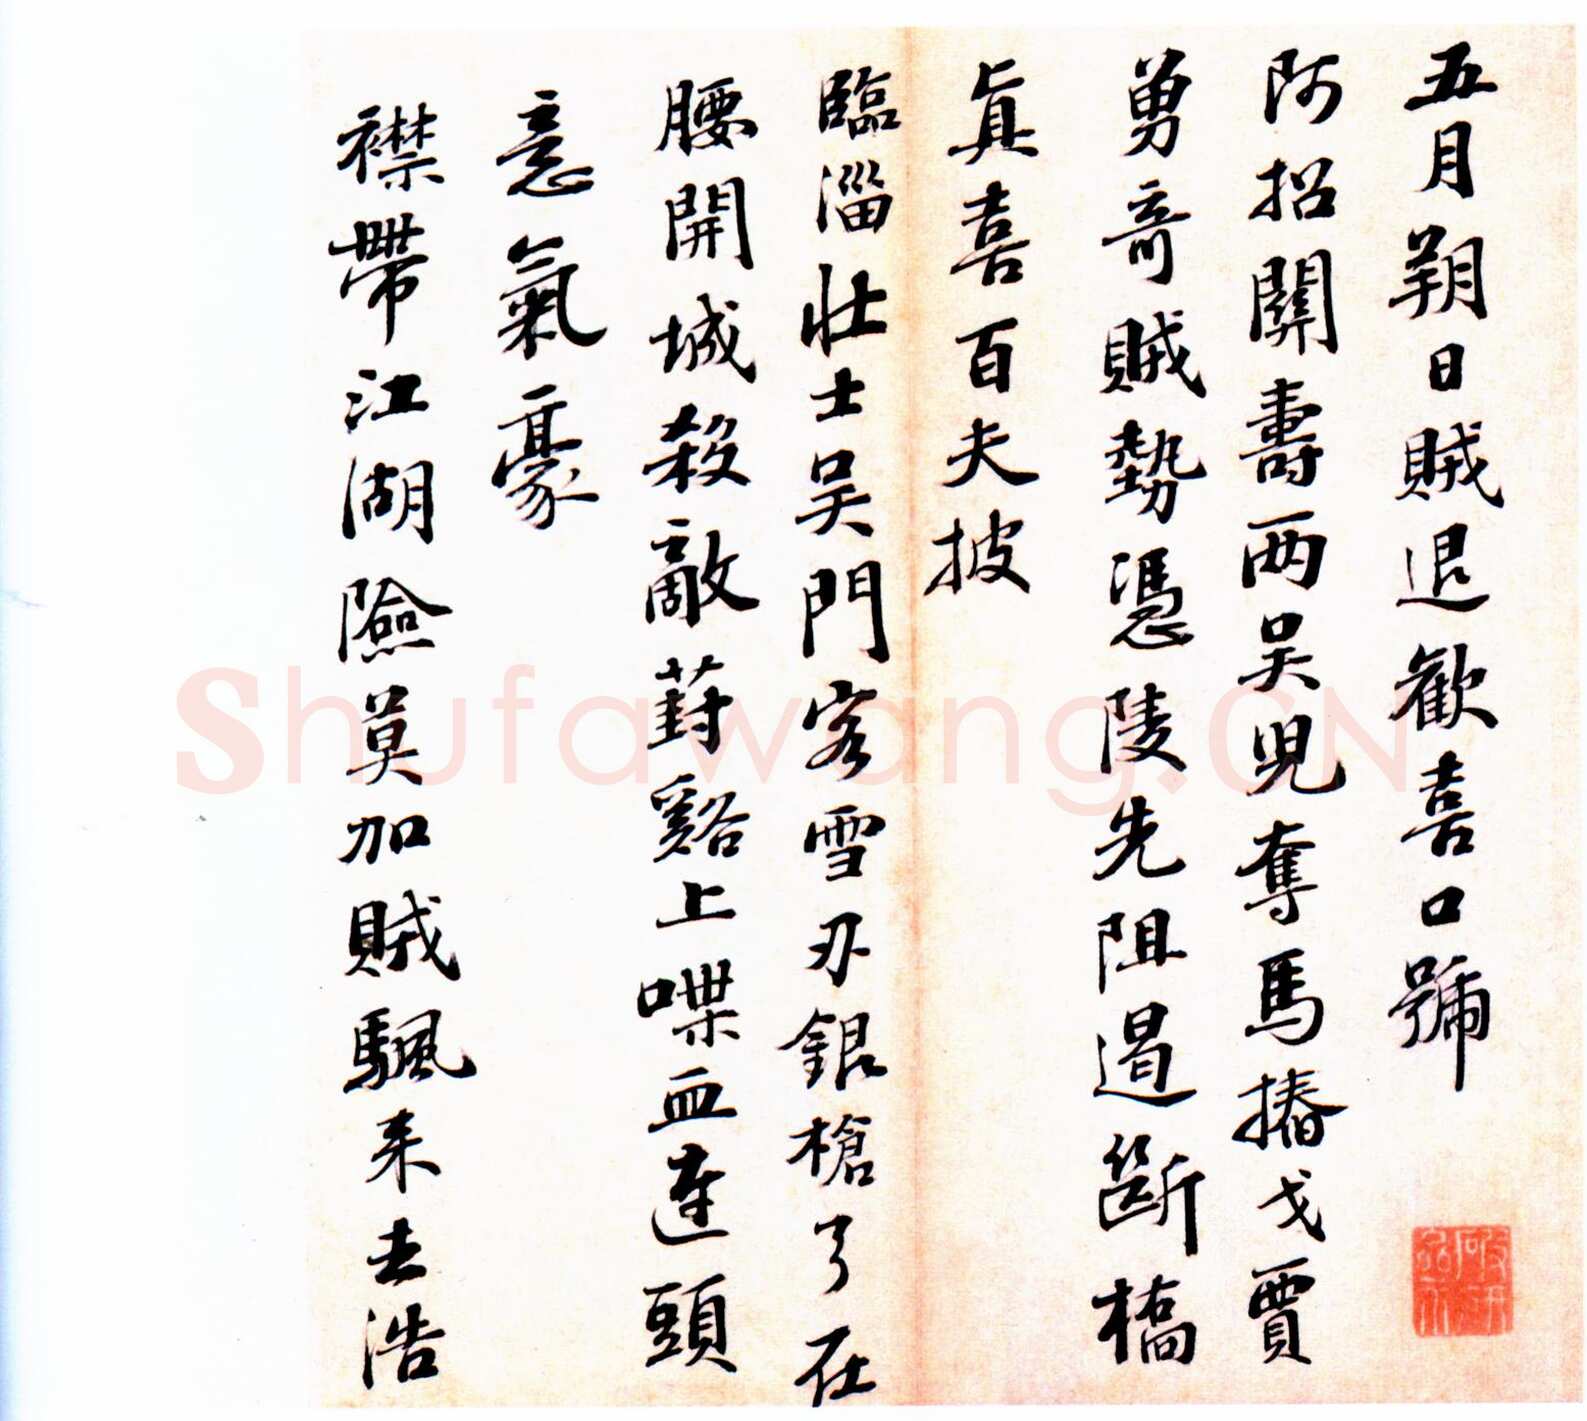 五月朔日賊退歡喜口號
阿招關壽两吴児奪馬摏戈賈
勇奇賊勢憑陵先阻遏斷橋
眞喜百夫披
臨淄壯士吴門客雪刃銀槍弓在
腰開城殺敵葑谿上喋血連頭
意氣豪
襟帶江湖險莫加賊颿来去浩
Shufawang.CN